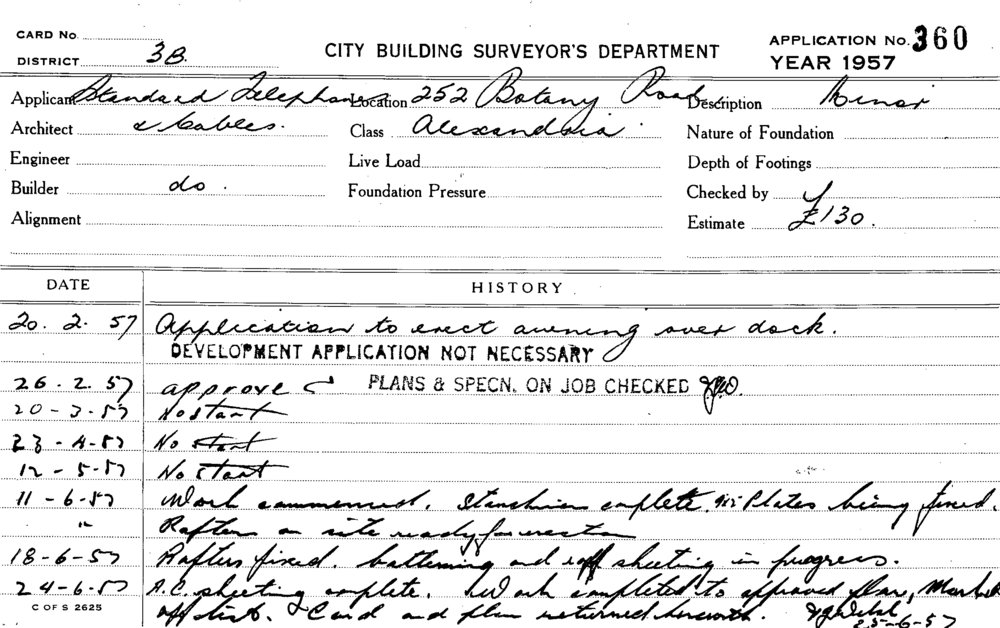 CARD No.
DISTRICT 3B.
CITY BUILDING SURVEYOR'S DEPARTMENT
APPLICATION No. 360
YEAR 1957
Applicant Standard Telephones Location 252 Botany Road Description Minor
Architect & Cables. Class Alexandria Nature of Foundation
Engineer Live Load Depth of Footings
Builder do. Foundation Pressure Checked by
Alignment Estimate £130.
DATE HISTORY
20. 2. 57 Application to erect awning over dock.
DEVELOPMENT APPLICATION NOT NECESSARY
26. 2. 57 approve PLANS & SPECN. ON JOB CHECKED
20-3-57 No start
23-4-57 No start
12-5-57 No start
11-6-57 Work commenced. Stanchions complete, Plates being fixed.
" Rafters on site ready for erection
18-6-57 Rafters fixed. battening and roof sheeting in progress.
24-6-57 A.C. sheeting complete. Work completed to approved plan, Marked
off dist. & Card and plan returned herewith.
C OF S 2625 25-6-57